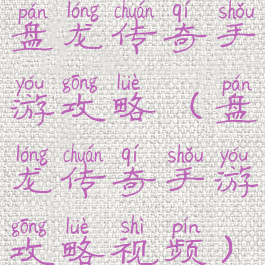 pán lóng chuán qí shǒu
盘龙传奇手
yóu gōng lüè pán
游攻略（盘
lóng chuán qí shǒu yóu
龙传奇手游
gōng lüè shì pín
攻略视频）